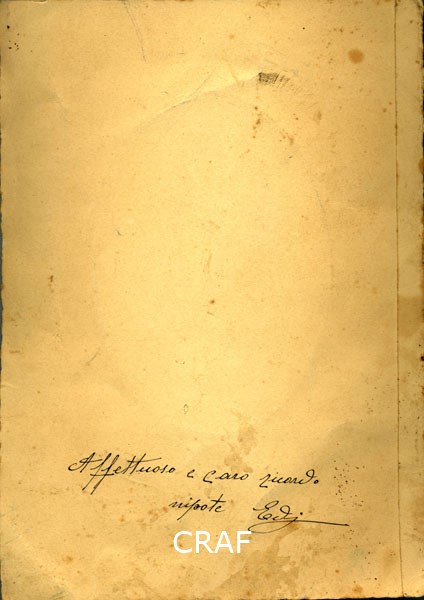 Affettuoso e caro ricordo
nipote Edj
CRAF